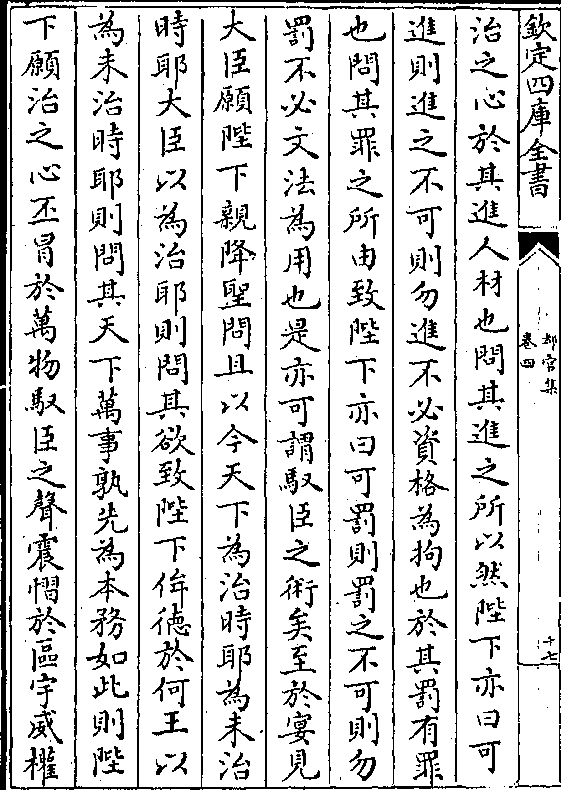 欽定四庫全書
都官集
卷四
十七
治之心於其進人材也問其進之所以然陛下亦曰可
進則進之不可則勿進不必資格為拘也於其罰有罪
也問其罪之所由致陛下亦曰可罰則罰之不可則勿
罰不必文法為用也是亦可謂馭臣之術矣至於宴見
大臣願陛下親降聖問且以今天下為治時耶為未治
時耶大臣以為治耶則問其欲致陛下侔徳於何王以
為未治時耶則問其天下萬事孰先為本務如此則陛
下願治之心丕冒於萬物馭臣之聲震慴於區宇威權